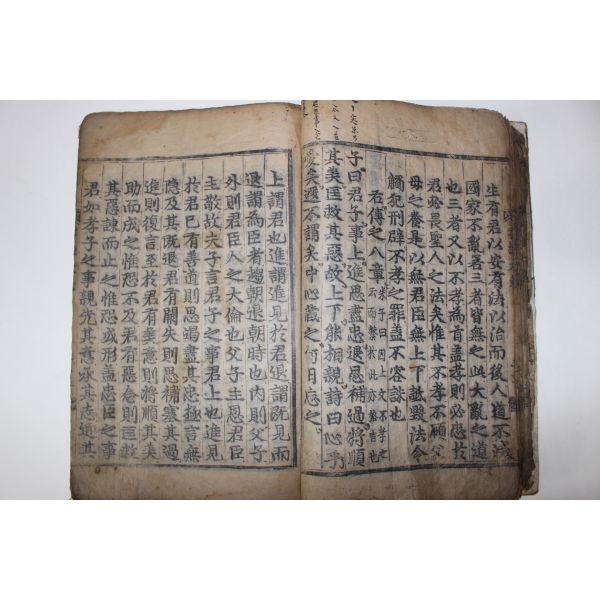 生有君以安有法以治而後人道不滅
國家不亂若三者皆無之此大亂之道
也三者又以不孝為首盖孝則必忠於
君必畏聖人之法矣惟其不孝不顧父
母之養是以無君臣無上下詆毀法令
觸犯刑辟不孝之罪盖不容誅也
右傳之八章
子曰君子事上進思盡忠退思補過將順
其美匡救其惡故上下能相親詩曰心乎
愛矣遐不謂矣中心藏之何日忘之
上謂君也進謂進見於君退謂既見而
退謂為臣者趨朝退朝時也內則父子
外則君臣人之大倫也父子主恩君臣
主敬故夫子言君子之事君上也進見
於君已有善道則思竭盡其忠極言無
隱及其既退君有闕失則思補塞其過
進則復言至於君有美意則將順其美
助而成之惟恐不及君有惡念則匡救
其惡諫而止之惟恐或形盖忠臣之事
君如孝子之事親先其意承其志迎其